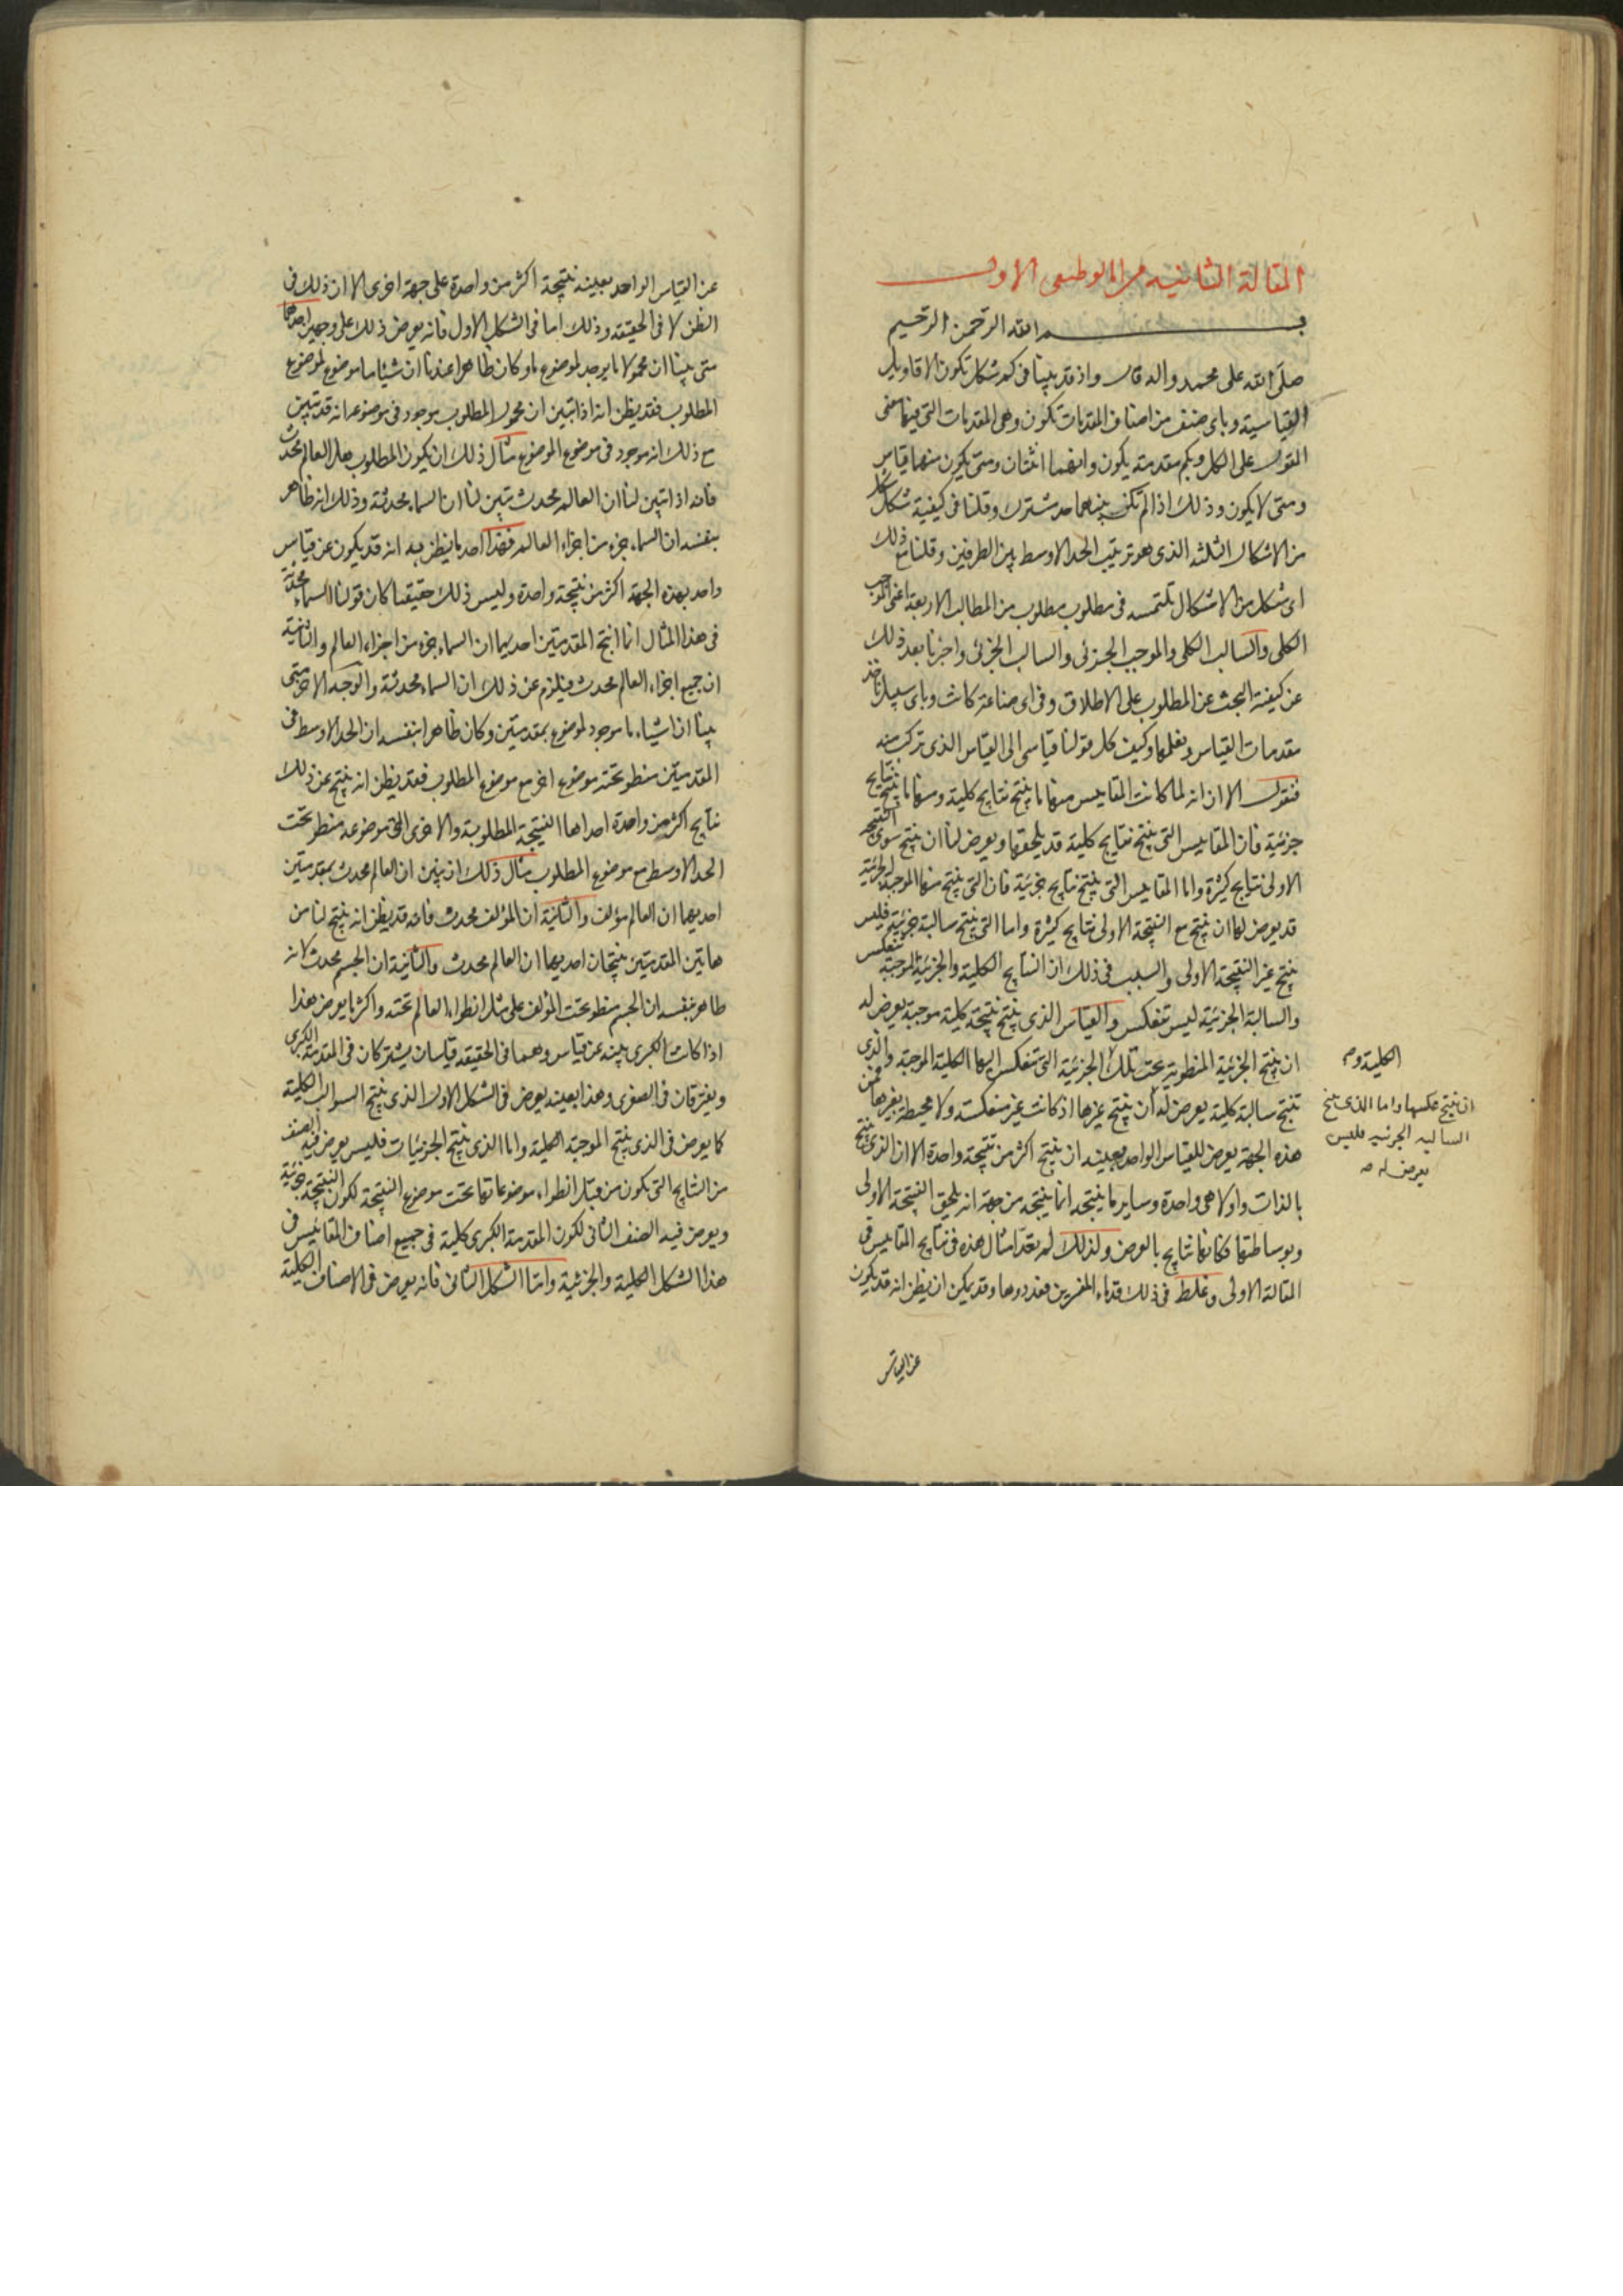 المقالة الثانية من انالوطيقى الاول
بسم الله الرحمن الرحيم
صلى الله على محمد واله قال واذ قد بينا فى كم شكل تكون الاقاويل
القياسية وباى صنف من اصناف المقدمات تكون وهى المقدمات التى فيها معنى
المقول على الكل وبكم مقدمة يكون وانهما اثنتان ومتى يكون منهما قياس
ومتى لا يكون وذلك اذا لم تكن بينهما حد مشترك وقلنا فى كيفية شكل شكل
من الاشكال الثلثة الذى هو ترتيب الحد الاوسط بين الطرفين وقلنا مع ذلك
اى شكل من الاشكال تلتمسه فى مطلوب مطلوب من المطالب الاربعة اعنى الموجب
الكلى والسالب الكلى والموجب الجزئى والسالب الجزئى واخبرنا بعد ذلك
عن كيفية البحث عن المطلوب على الاطلاق وفى اى صناعة كانت وباى سبيل ناخذ
مقدمات القياس ونعلمها وكيف نحل قولنا قياسى الى القياس الذى تركب منه
فنقول الان انه لما كانت المقاييس منها ما ينتج نتايج كلية ومنها ما ينتج نتايج
جزئية فان المقاييس التى ينتج نتايج كلية قد يلحقها ويعرض لنا ان ينتج سوى النتيجة
الاولى نتايج كثيرة واما المقاييس التى ينتج نتايج جزئية فان التى ينتج منها الموجبة الجزئية
قد يعرض لها ان ينتج مع النتيجة الاولى نتايج كثيرة واما التى ينتج سالبة جزئية فليس
ينتج غير النتيجة الاولى والسبب فى ذلك ان النتايج الكلية والجزئية الموجبة تنعكس
والسالبة الجزئية ليس تنعكس والقياس الذى ينتج نتيجة كلية موجبة يعرض له
ان ينتج الجزئية المنطوية تحت تلك الجزئية التى تنعكس اليها الكلية الموجبة والذى
تنتج سالبة كلية يعرض له ان ينتج غيرها اذ كانت غير منعكسة ولا محيطة بغيرها فمن
هذه الجهة يعرض للقياس الواحد بعينه ان ينتج اكثر من نتيجة واحدة الا ان الذى ينتج
بالذات واولا هى واحدة وساير ما ينتجه انما ينتجه من جهة انه يلحق النتيجة الاولى
وبوساطتها فكانها نتايج بالعرض ولذلك لم تعد امثال هذه فى نتايج المقاييس فى
المقالة الاولى وغلط فى ذلك قدماء المفسرين فعددوها وقد يمكن ان يظن انه قد يكون
عن القياس
الكلية وم
ان ينتج عكسها واما الذى ينتج
السالبه الجزئيه فليس
يعرض له صه
عن القياس الواحد بعينه نتيجة اكثر من واحدة على جهة اخرى الا ان ذلك فى
الظن لا فى الحقيقة وذلك اما فى الشكل الاول فانه يعرض ذلك على وجهين احدهما
متى بينا ان محمولا ما يوجد لموضوع ما وكان ظاهرا عندنا ان شيئا ما موضوع لموضوع
المطلوب فقد يظن انه اذا تبين ان محمول المطلوب موجود فى موضوعه انه قد تبين
مع ذلك انه موجود فى موضوع الموضوع مثال ذلك ان يكون المطلوب هل العالم محدث
فانه اذا تبين لنا ان العالم محدث تبين لنا ان السماء محدثة وذلك انه ظاهر
بنفسه ان السماء جزء من اجزاء العالم فهذا احد ما يظن به انه قد يكون عن قياس
واحد بهذه الجهة اكثر من نتيجة واحدة وليس ذلك حقيقيا كان قولنا السماء محدثة
فى هذا المثال انما انتج المقدمتين احديهما ان السماء جزء من اجزاء العالم والثانية
ان جميع اجزاء العالم محدث فيلزم عن ذلك ان السماء محدثة والوجه الاخر متى
بينا ان اشياء ما موجود لموضوع بمقدمتين وكان ظاهرا بنفسه ان الحد الاوسط فى
المقدمتين منطو تحته موضوع اخر مع موضوع المطلوب فقد يظن انه ينتج عن ذلك
نتايج اكثر من واحدة احداها النتيجة المطلوبة والاخرى التى موضوعه منطو تحت
الحد الاوسط مع موضوع المطلوب مثال ذلك ان نبين ان العالم محدث بمقدمتين
احديهما ان العالم مؤلف والثانية ان المؤلف محدث فانه قد يظن انه ينتج لنا من
هاتين المقدمتين نتيجتان احديهما ان العالم محدث والثانية ان الجسم محدث لانه
ظاهر بنفسه ان الجسم منطو تحت المؤلف على مثل انطواء العالم تحته واكثر ما يعرض هذا
اذا كانت الكبرى بينة عن قياس وهما فى الحقيقة قياسان يشتركان فى المقدمة الكبرى
ويفترقان فى الصغرى وهذا بعينه يعرض فى الشكل الاول الذى ينتج السوالب الكلية
كما يعرض فى الذى ينتج الموجبة الكلية واما الذى ينتج الجزئيات فليس يعرض فيه الصنف
من النتايج التى تكون من قبل انطواء موضوعاتها تحت موضوع النتيجة لكون النتيجة جزئية
ويعرض فيه الصنف الثانى لكون المقدمة الكبرى كلية فى جميع اصناف المقائيس فى
هذا الشكل الكلية والجزئية واما الشكل الثانى فانه يعرض فى الاصناف الكلية